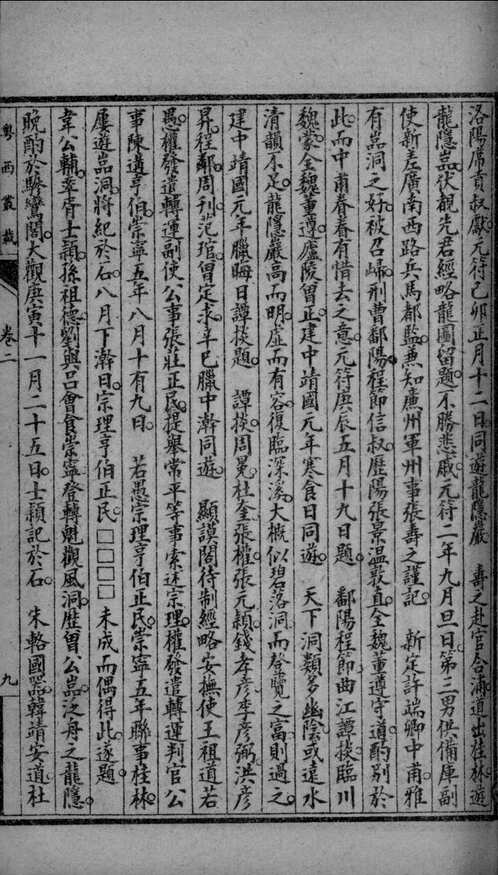 洛陽席貢叔獻元符己卯正月十二日同遊龍隱巖　壽之赴官合浦道出桂林遊
龍隱嵓伏觀先君經略龍圖留題不勝悲感元符二年九月旦日第三男供備庫副
使新差廣南西路兵馬都監兼知廉州軍州事張壽之謹記　新定許端卿中甫雅
有嵓洞之好被召歸刑曹鄱陽程節信叔歷陽張景溫叢直全魏董遵守道酌别於
此而中甫眷眷有惜去之意元符庚辰五月十九日題　鄱陽程節曲江譚掞臨川
魏蒙全魏董遵廬陵曾正建中靖國元年寒食日同遊　天下洞類多幽陰或遠水
清韻不足龍隱巖高而明虛而有容復臨深溪大概似碧落洞而登覽之富則過之
建中靖國元年臘晦日譚掞題　譚掞周冕杜全張權張元頴錢孝彥李彥弼洪彥
昇程鄰周刊范琯曾定求辛巳臘中澣同遊　顯謨閣待制經略安撫使王祖道若
愚權發遣轉運副使公事張莊正民提舉常平等事索述宗理權發遣轉運判官公
事陳邁亨伯崇寧五年八月十有九日　若愚宗理亨伯正民崇寧五年聯事桂林
屢遊嵓洞將紀於石八月下澣日宗理亨伯正民□□□□未成而偶得此遂題
韋公輔率胥士頴孫祖德劉興呂會食崇寧登轉魁觀風洞歷曾公嵓泛舟之龍隱
晚酌於驂鸞閣大觀庚寅十一月二十五日士頴記於石　朱輅國器韓靖安道杜
粤西叢載　卷二　九